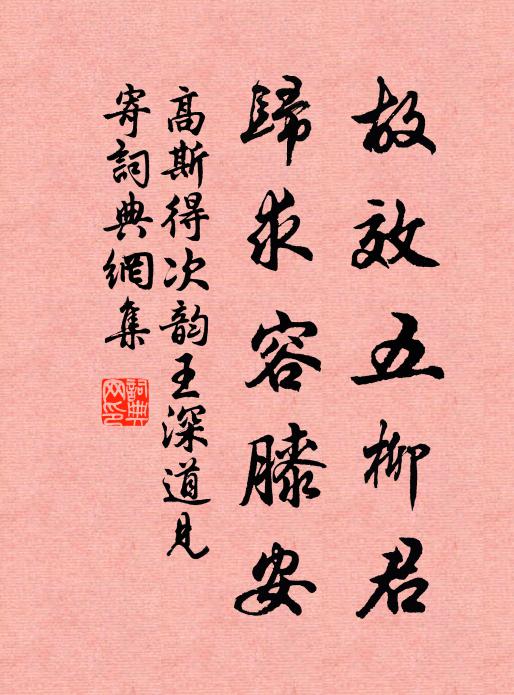 故效五柳君
歸求容膝安
高斯得次韵王深道見
寄詞典網集
詞典
网印